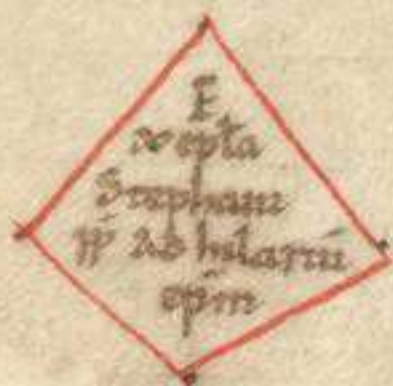 E
x epł̄a
Stephani
p̄p̄ ad hilariū
ep̄m